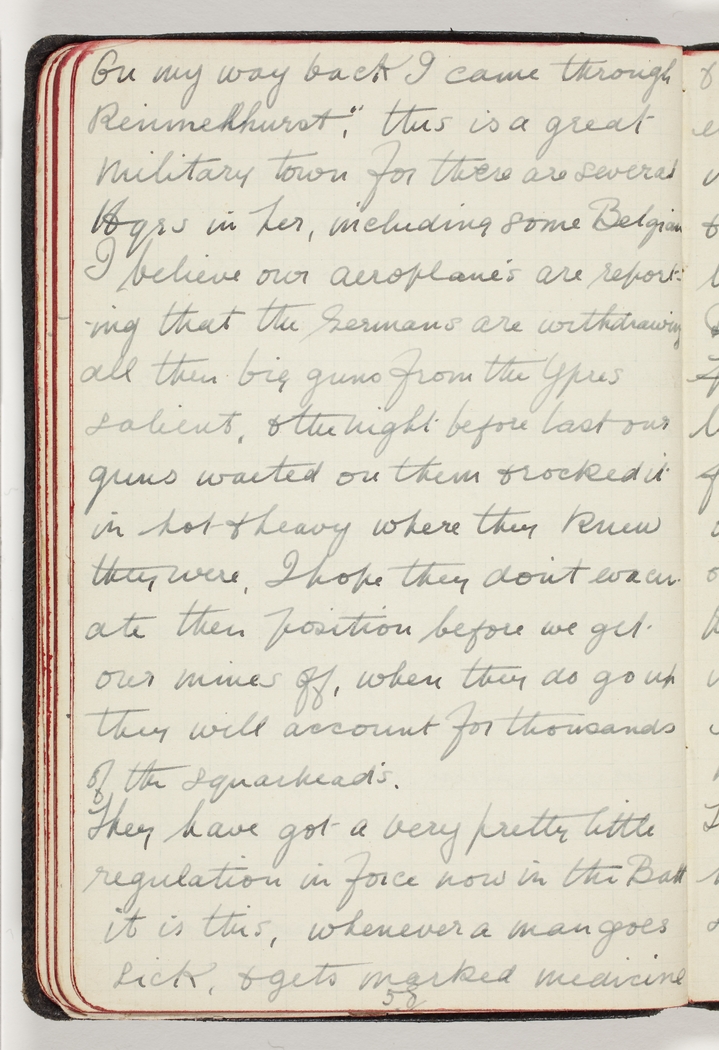 On my way back I came through
Renmehhurst", this is a great
Military town for there are several
Hqrs in her, including some Belgian
I believe our aeroplane's are report-
-ing that the Germans are withdrawing
all their big guns from the Ypres
salient, & the night before last our
guns waited on them & rocked it
in hot & heavy where they knew
they were, I hope they don't evacu-
ate their position before we get
our mines off, when they do go up
they will account for thousands
of the squarhead's.
They have got a very pretty little
regulation in force now in the Batt
it is this, whenever a man goes
sick, & gets marked medicine
58